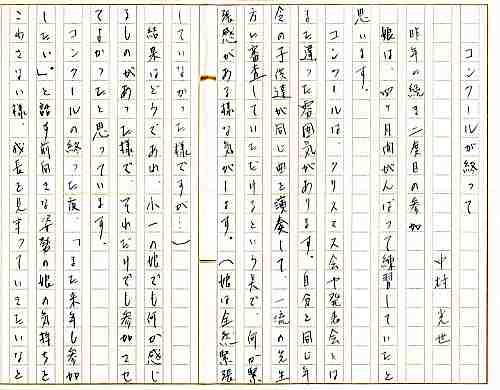 コンクールが終って
中村 光世
昨年の続き二度目の参加
娘は、四ヶ月間がんばって練習していたと
思います。
コンクールは、クリスマス会や発表会とは
また違った雰囲気があります。自分と同じ年
令の子供達が同じ曲を演奏して、一流の先生
方に審査していただけるという点で、何か緊
張感がある様な気がします。(娘は全然緊張
していなかった様ですが…)
結果はどうであれ、小一の娘でも何か感じ
るものがあった様で、それだけでも参加させ
てよかったと思っています。
コンクールの終った夜、「また来年も参加
したい。」と話す前向きな姿勢の娘の気持ちを
こわさない様、成長を見守っていきたいなと